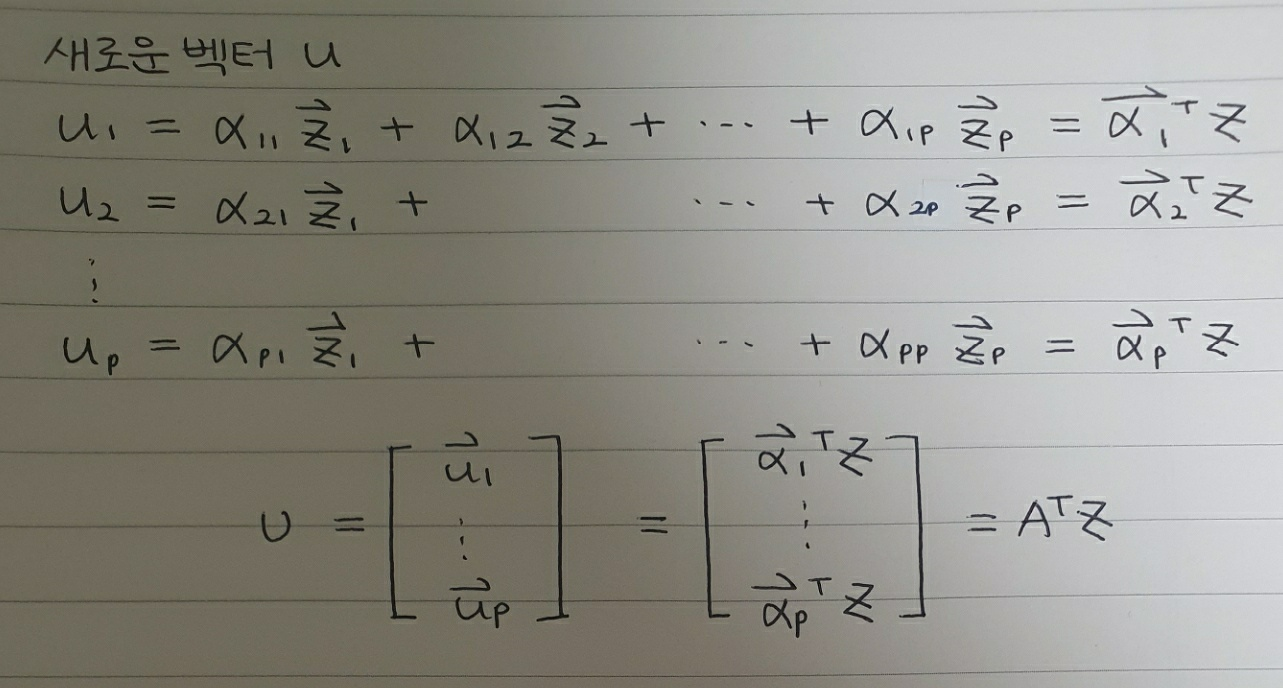 새로운 벡터 u
u₁ = α₁₁ z⃗₁ + α₁₂ z⃗₂ + ⋯ + α₁ₚ z⃗ₚ = α⃗₁ᵀ Z
u₂ = α₂₁ z⃗₁ + ⋯ + α₂ₚ z⃗ₚ = α⃗₂ᵀ Z
⋮
uₚ = αₚ₁ z⃗₁ + ⋯ + αₚₚ z⃗ₚ = α⃗ₚᵀ Z
U = [ u⃗₁ ⋮ u⃗ₚ ] = [ α⃗₁ᵀ Z ⋮ α⃗ₚᵀ Z ] = Aᵀ Z